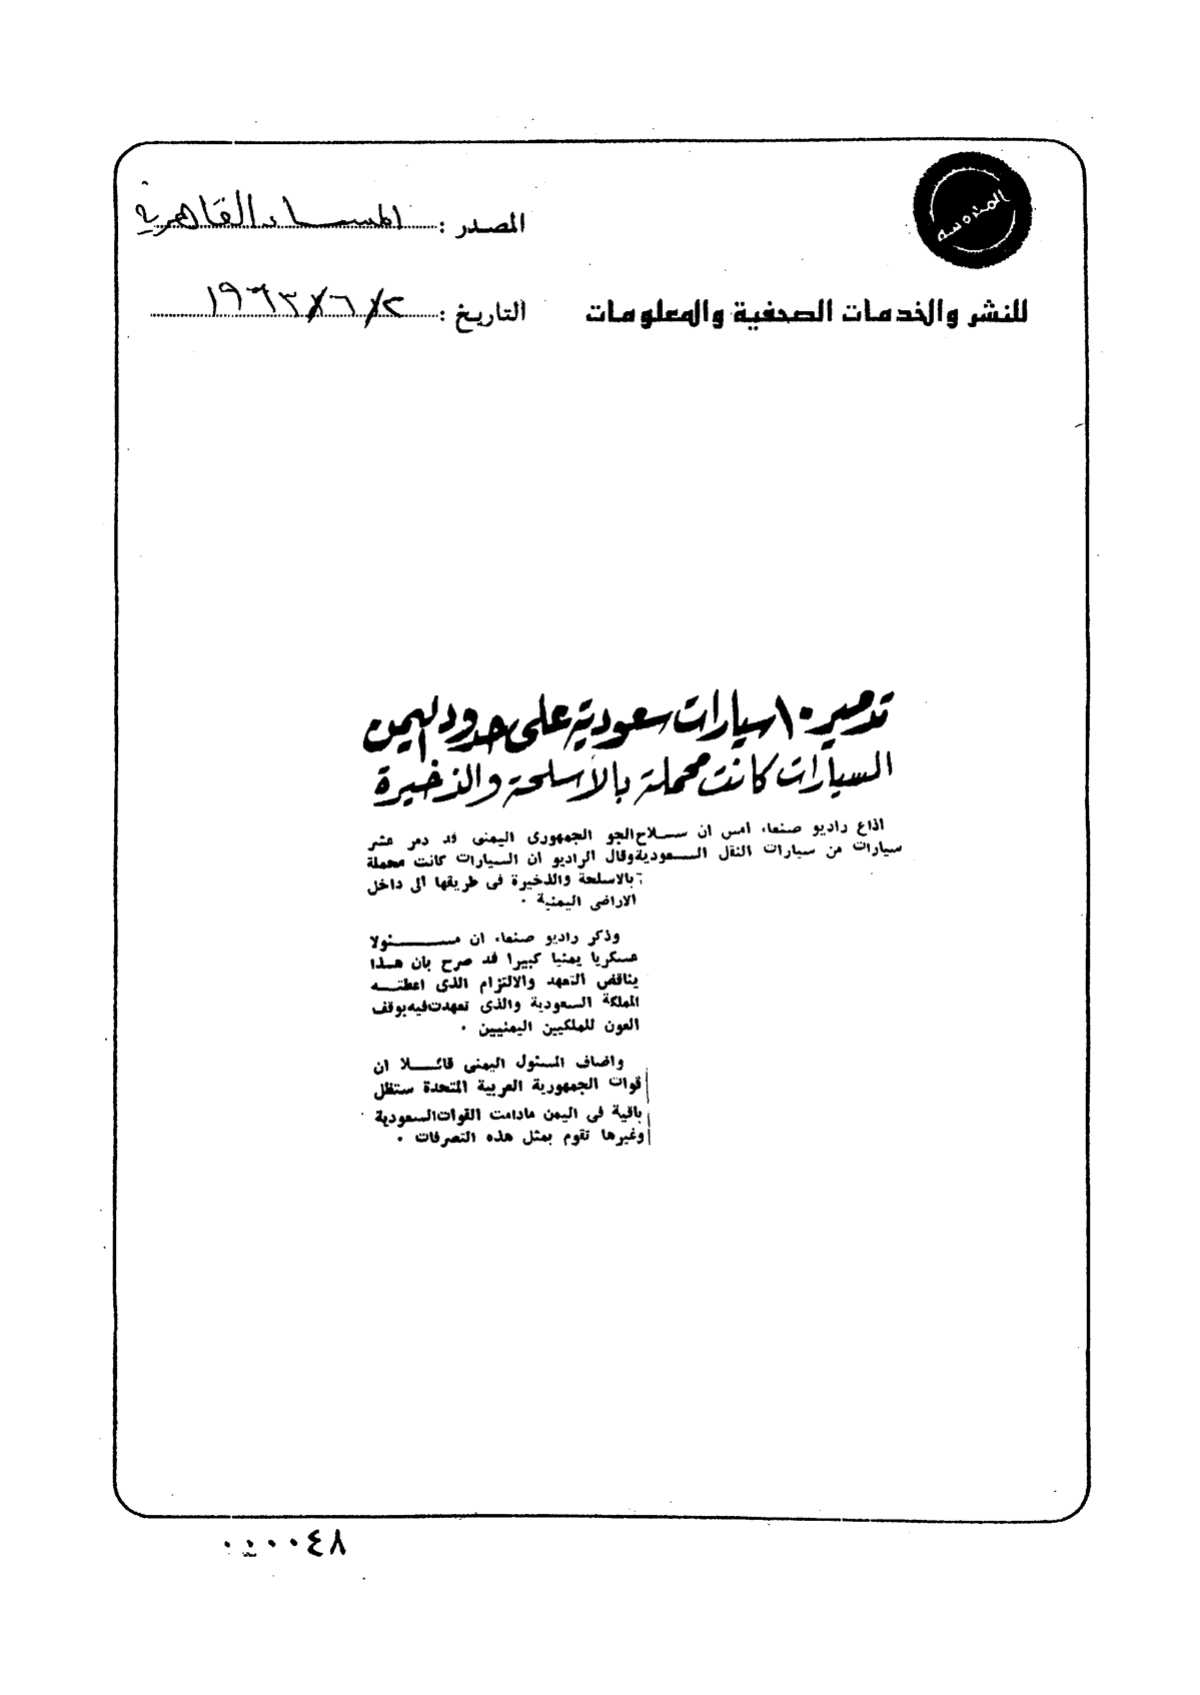 المندوسه
المصدر : المساء القاهرية
للنشر والخدمات الصحفية والمعلومات
التاريخ : ٢/٦/١٩٦٣
تدمير ١٠ سيارات سعودية على حدود اليمن
السيارات كانت محملة بالأسلحة والذخيرة
اذاع راديو صنعاء امس ان ســلاح
سيارات من سيارات النقل السـعودية
الجو الجمهورى اليمنى قد دمر عشر
وقال الراديو ان السيارات كانت محملة
بالاسلحة والذخيرة فى طريقها الى داخل
الاراضى اليمنية .
وذكر راديو صنعاء ان مســـئولا
عسكريا يمنيا كبيرا قد صرح بان هـذا
يناقض التعهد والالتزام الذى اعطتـه
المملكة السعودية والذى تعهدت فيه بوقف
العون للملكيين اليمنيين .
واضاف المسئول اليمنى قائـلا ان
قوات الجمهورية العربية المتحدة ستظل
باقية فى اليمن مادامت القوات السعودية
وغيرها تقوم بمثل هذه التصرفات .
٠٠٠٠٤٨